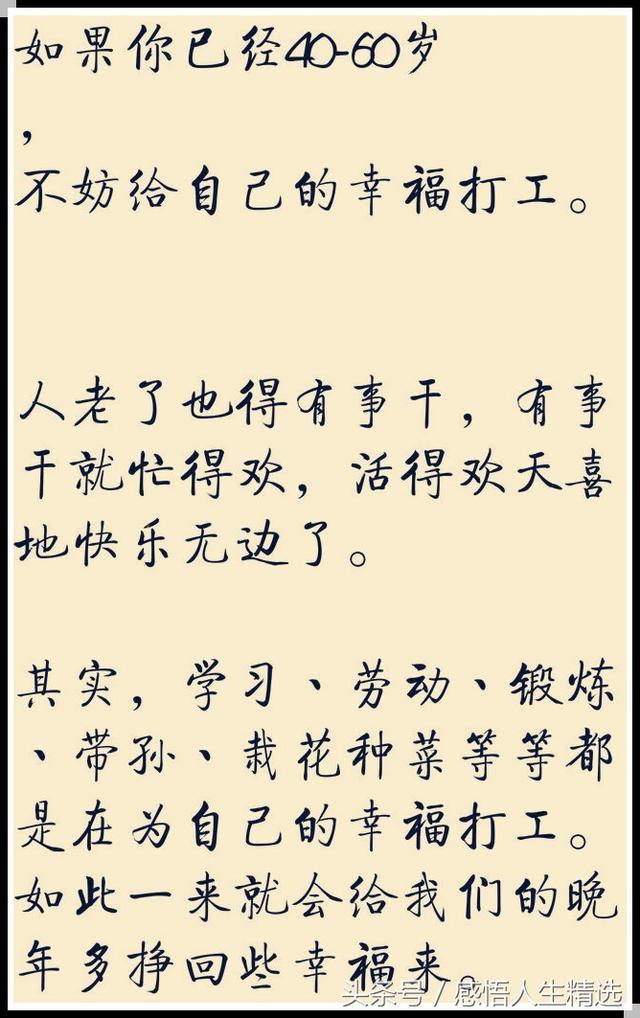 如果你已经40-60岁
，
不妨给自己的幸福打工。
人老了也得有事干，有事
干就忙得欢，活得欢天喜
地快乐无边了。
其实，学习、劳动、锻炼
、带孙、栽花种菜等等都
是在为自己的幸福打工。
如此一来就会给我们的晚
年多挣回些幸福来。
头条号/感悟人生精选